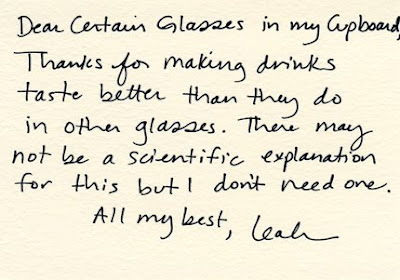 Dear Certain Glasses in my Cupboard,
Thanks for making drinks
taste better than they do
in other glasses. There may
not be a scientific explanation
for this but I don't need one.
All my best, Leah